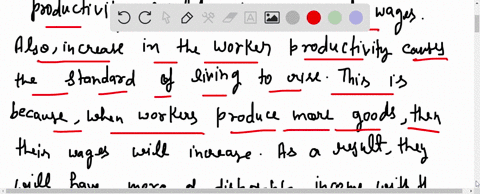 productivity wages.
Also, increase in the worker productivity causes
the standard of living to rise. This is
because, when workers produce more goods, then
their wages will increase. As a result, they
will have more disposable income with